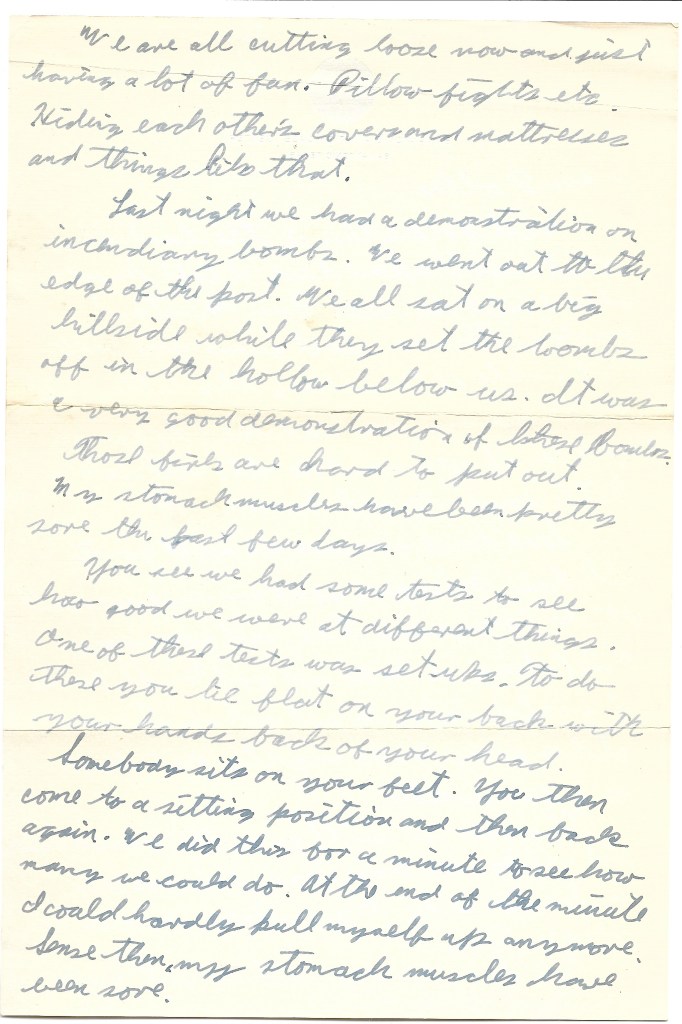 We are all cutting loose now and just
having a lot of fun. Pillow fights etc.
Hiding each others covers and mattresses
and things like that.
Last night we had a demonstration on
incendiary bombs. We went out to the
edge of the post. We all sat on a big
hillside while they set the bombs
off in the hollow below us. It was
a very good demonstration of these bombs.
Those fires are hard to put out.
My stomach muscles have been pretty
sore the past few days.
You see we had some tests to see
how good we were at different things.
One of these tests was set-ups. To do
these you lie flat on your back with
your hands back of your head.
Somebody sits on your feet. You then
come to a sitting position and then back
again. We did this for a minute to see how
many we could do. At the end of the minute
I could hardly pull myself up anymore.
Sense then, my stomach muscles have
been sore.